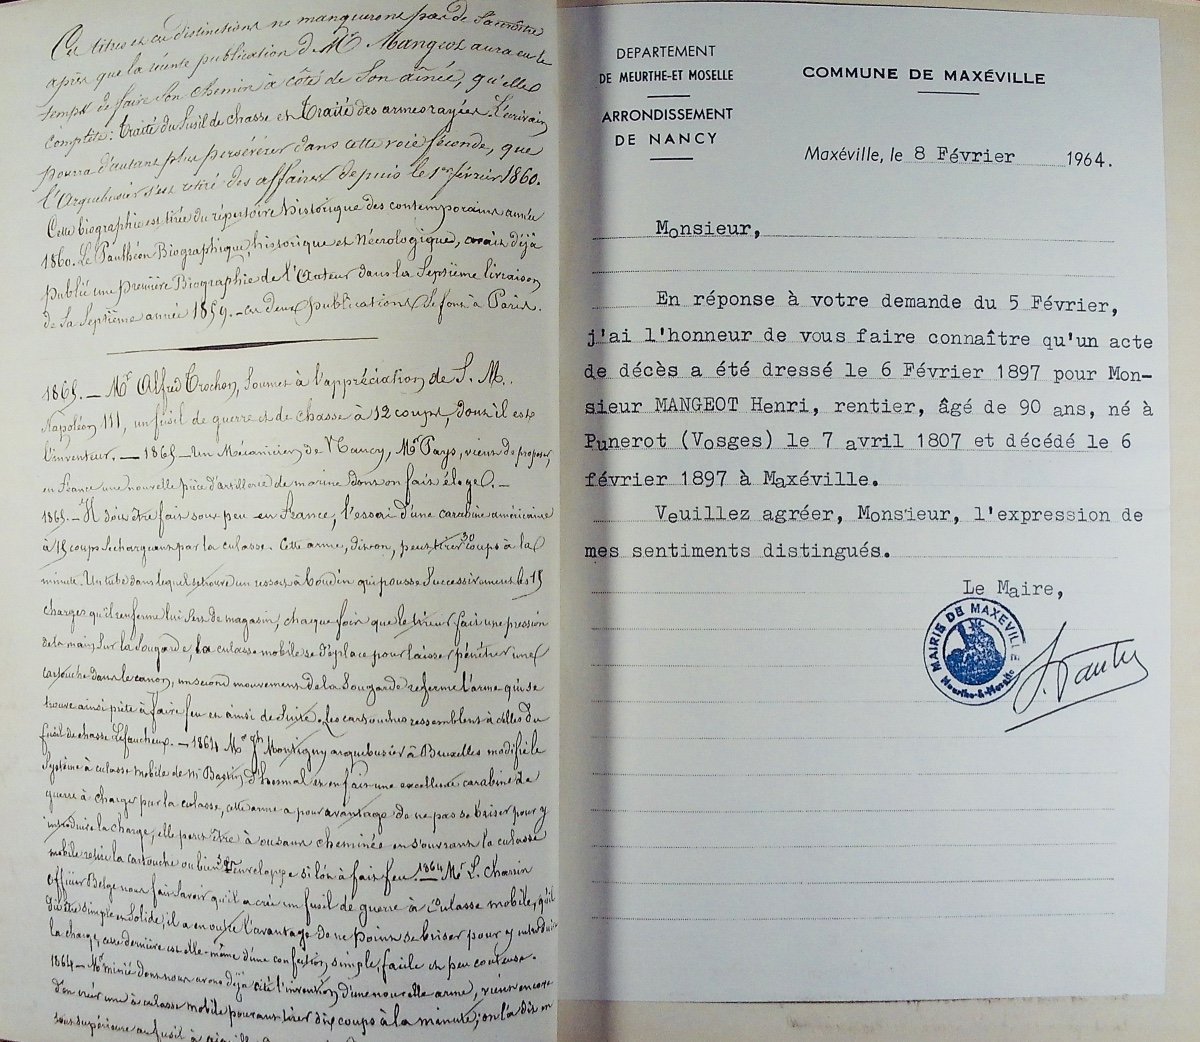 Ces titres et ces distinctions ne manqueront pas de s'accroître
après que la récente publication d. Mr Mangeot aura eu le
temps de faire son chemin à côté de son aînée, qu'elle
complète: traité du fusil de chasse et traité des armes rayées. L'écrivain
pourra d'autant plus persévérer dans cette voie féconde, que
l'Arquebusier s'est retiré des affaires depuis le 1er février 1860.
Cette biographie est tirée du répertoire historique des contemporains année
1860. Le Panthéon Biographique, historique et Nécrologique, avait déjà
publié une première Biographie de l'Auteur dans la Septième livraison
de sa Septième année 1859. – ces deux publications se font à Paris.
1865. — Mr Alfred Crochon, soumet à l'appréciation de S. M.
Napoléon III, un fusil de guerre et de chasse à 12 coups, dont il est
l'inventeur. — 1865 – Un Mécanicien de Nancy, Mr Pays, vient de proposer,
en France une nouvelle pièce d'artillerie de marine dont on fait éloge. –
1865. – Il doit être fait sous peu en France, l'essai d'une carabine américaine
à 15 coups se chargeant par la culasse. Cette arme, dit-on, peut tirer 30 coups à la
minute. Un tube dans lequel se trouve un ressort à boudin qui pousse successivement les 15
charges qu'il renferme lui sert de magasin, chaque fois que le tireur fait une pression
de la main sur la sougarde, la culasse mobile se déplace pour laisser pénétrer une
cartouche dans le canon, un second mouvement de la sougarde referme l'arme qui se
trouve ainsi prête à faire feu et ainsi de suite. les cartouches ressemblent à celles du
fusil de chasse Lefaucheux. – 1864 Mr gh Montigny arquebusier à Bruxelles modifie le
système à culasse mobile de Mr Bastin d'hermal et en fait une excellente carabine de
guerre à charger par la culasse, cette arme a pour avantage de ne pas se briser pour y
introduire la charge, elle peut être à ou sans cheminée en s'ouvrant la culasse
mobile retire la cartouche ou bien son enveloppe si l'on a fait feu. 1864 Mr L. Charrin
officier Belge nous fait savoir qu'il a créé un fusil de guerre à culasse mobile, qu'il
dit être simple et solide, il a en outre l'avantage de ne point se briser pour y introduire
la charge, cette dernière est elle-même d'une confection simple, facile et peu couteuse.
1864 – Mr minié dont nous avons déjà cité l'invention d'une nouvelle arme, vient encore
d'en créer une à culasse mobile pouvant tirer dix coups à la minute; on la dit en
tous supérieure au fusil à
DEPARTEMENT
DE MEURTHE-ET MOSELLE
ARRONDISSEMENT
DE NANCY
COMMUNE DE MAXÉVILLE
Maxéville, le 8 Février 1964.
Monsieur,
En réponse à votre demande du 5 Février,
j'ai l'honneur de vous faire connaître qu'un acte
de décès a été dressé le 6 Février 1897 pour Mon-
sieur MANGEOT Henri, rentier, âgé de 90 ans, né à
Punerot (Vosges) le 7 avril 1807 et décédé le 6
février 1897 à Maxéville.
Veuillez agréer, Monsieur, l'expression de
mes sentiments distingués.
Le Maire,
MAIRIE DE MAXEVILLE
Meurthe-&-Moselle